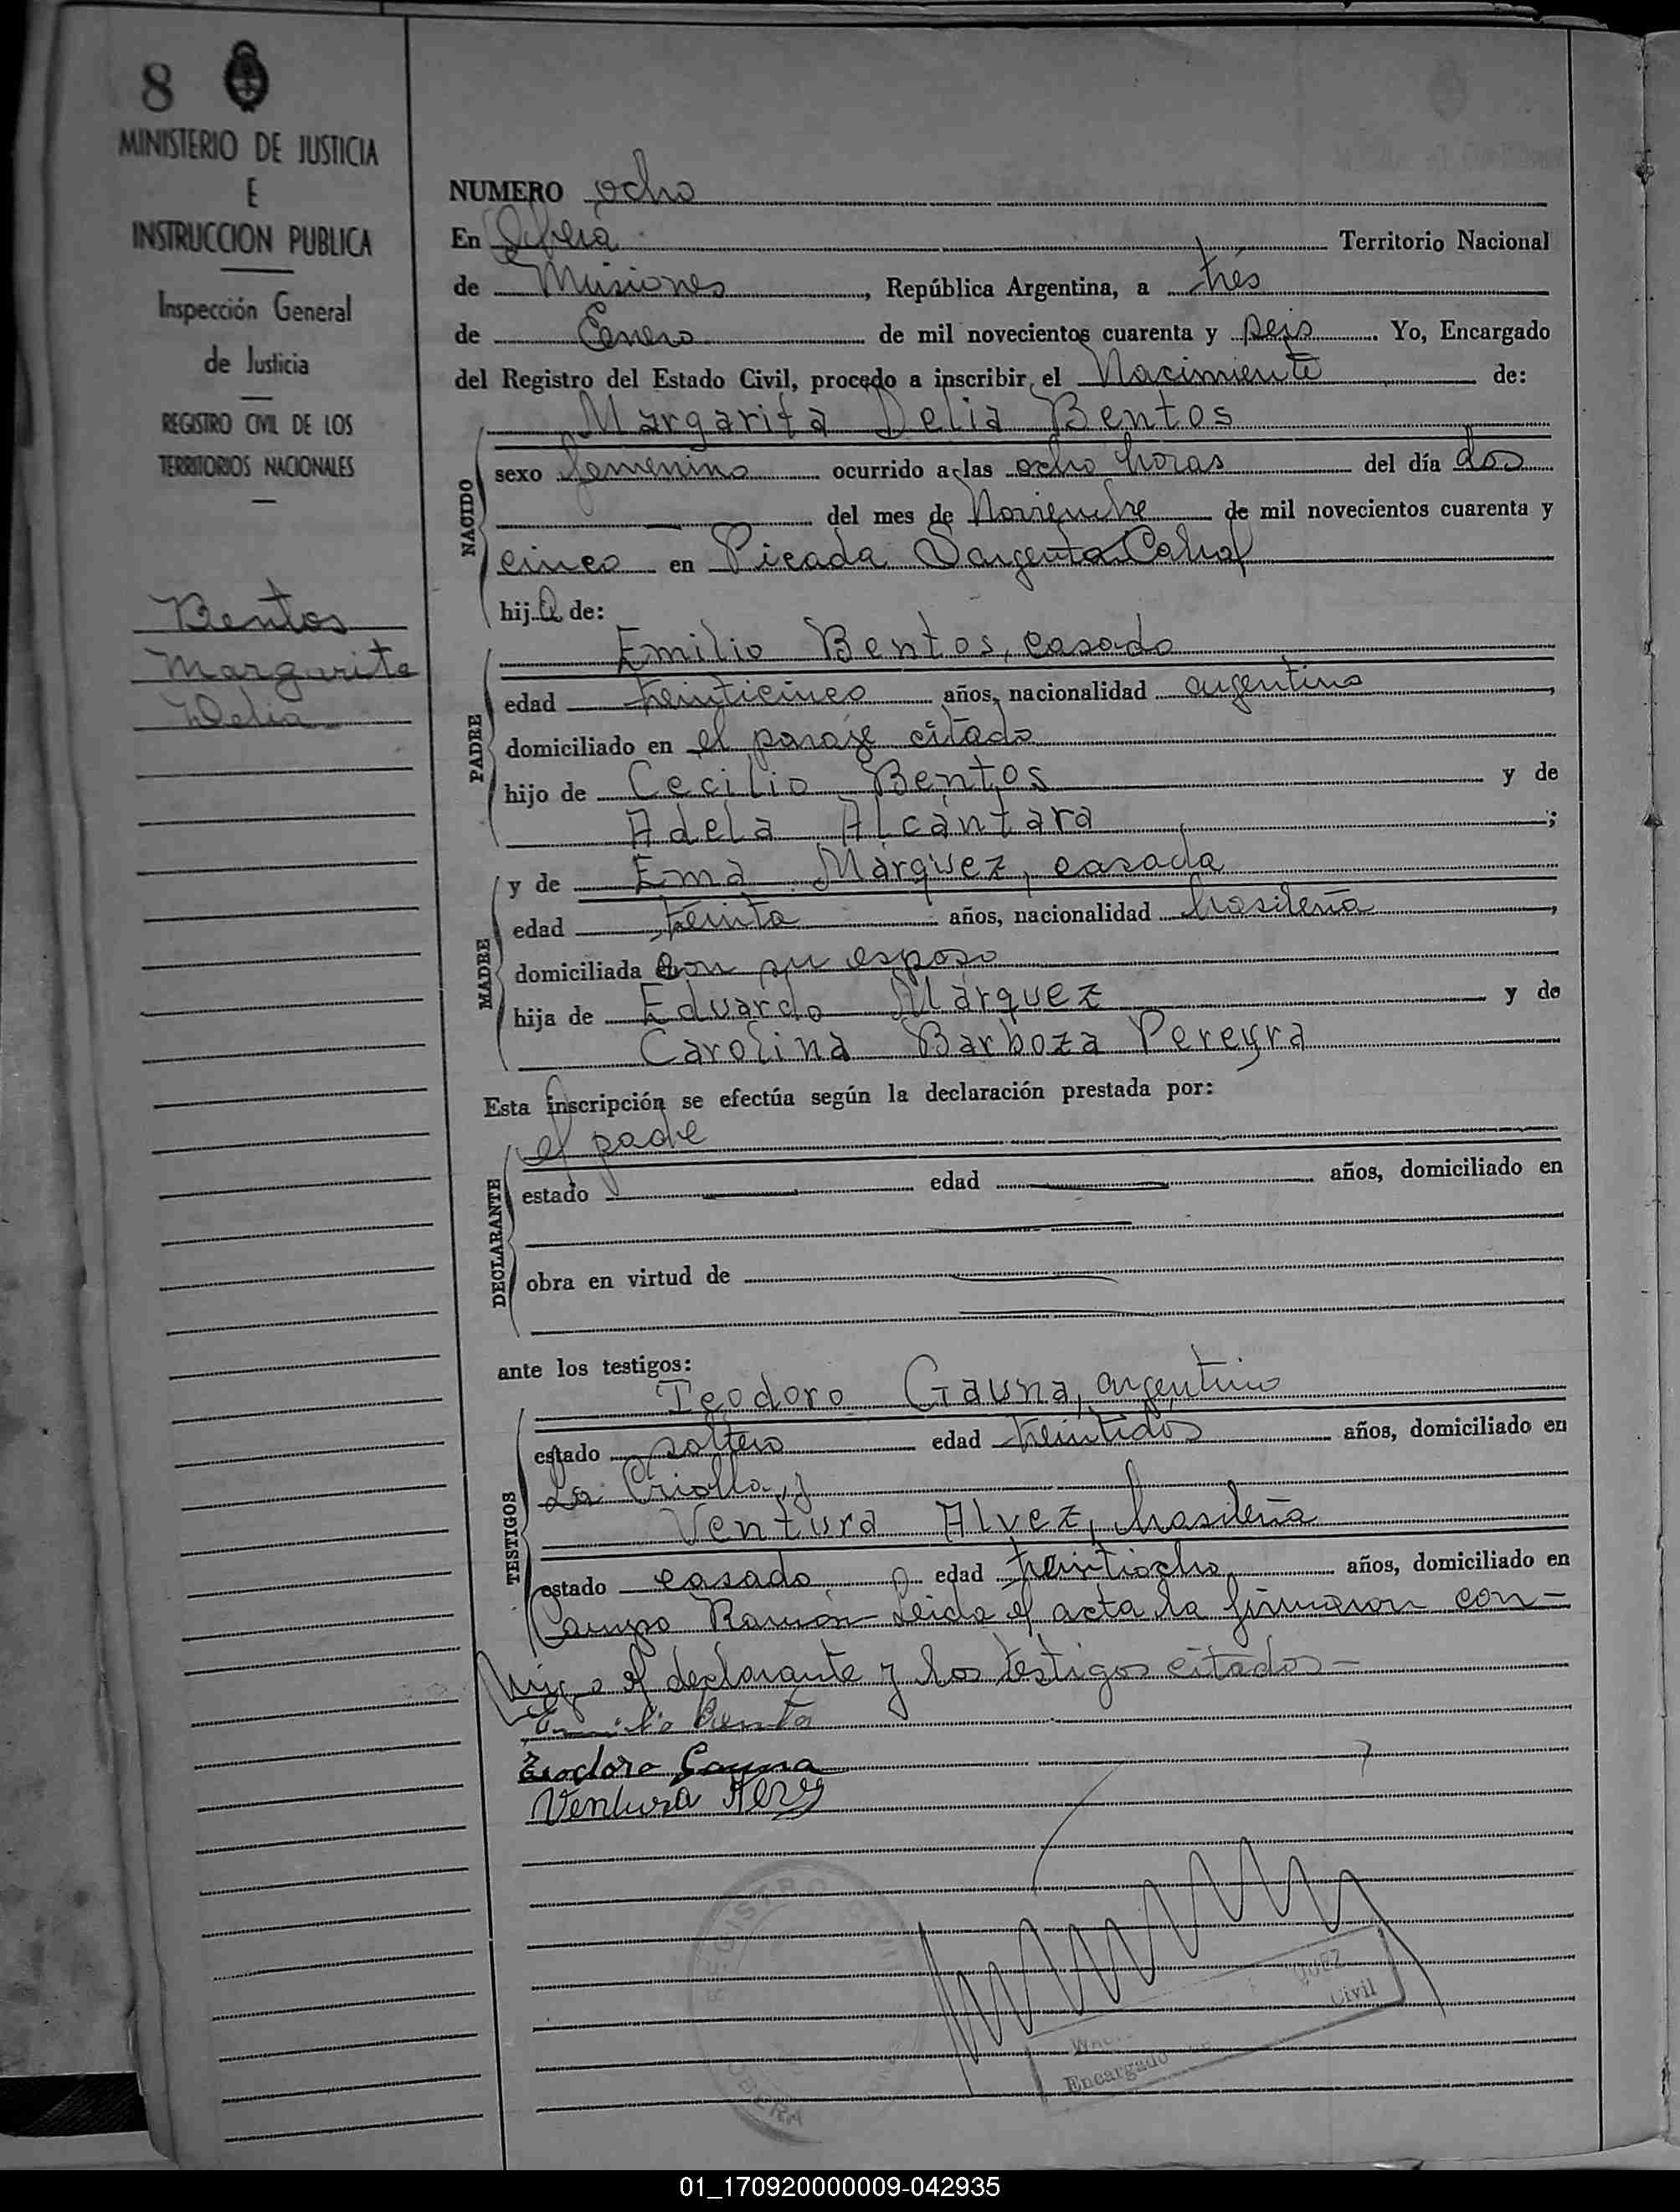 8
MINISTERIO DE JUSTICIA
E
INSTRUCCION PUBLICA
Inspección General
de Justicia
REGISTRO CIVIL DE LOS
TERRITORIOS NACIONALES
Bentos
Margarita
Delia
NUMERO ocho
En Oberá Territorio Nacional
de Misiones, República Argentina, a tres
de Enero de mil novecientos cuarenta y seis. Yo, Encargado
del Registro del Estado Civil, procedo a inscribir el Nacimiento de:
Margarita Delia Bentos
NACIDO
sexo femenino ocurrido a las ocho horas del día dos
del mes de Noviembre de mil novecientos cuarenta y
cinco en Picada Sargento Cabral
hija de:
PADRE
Emilio Bentos, casado
edad treinticinco años, nacionalidad argentino,
domiciliado en el paraje citado
hijo de Cecilio Bentos y de
Adela Alcántara;
MADRE
y de Ema Márquez, casada
edad treinta años, nacionalidad brasileña,
domiciliada con su esposo
hija de Eduardo Márquez y de
Carolina Barboza Pereyra
Esta inscripción se efectúa según la declaración prestada por:
DECLARANTE
el padre
estado edad años, domiciliado en
obra en virtud de
ante los testigos:
TESTIGOS
Teodoro Gauna, argentino
estado soltero edad treintidos años, domiciliado en
La Criolla, y
Ventura Alvez, brasileña
estado casado edad treintiocho años, domiciliado en
Campo Ramón - Leida el acta la firmaron con-
migo el declarante y los testigos citados-
Emilio Bento
Teodoro Gauna
Ventura Alvez
REGISTRO CIVIL
OBERA
QUEZ
Encargado Civil
01_170920000009-042935